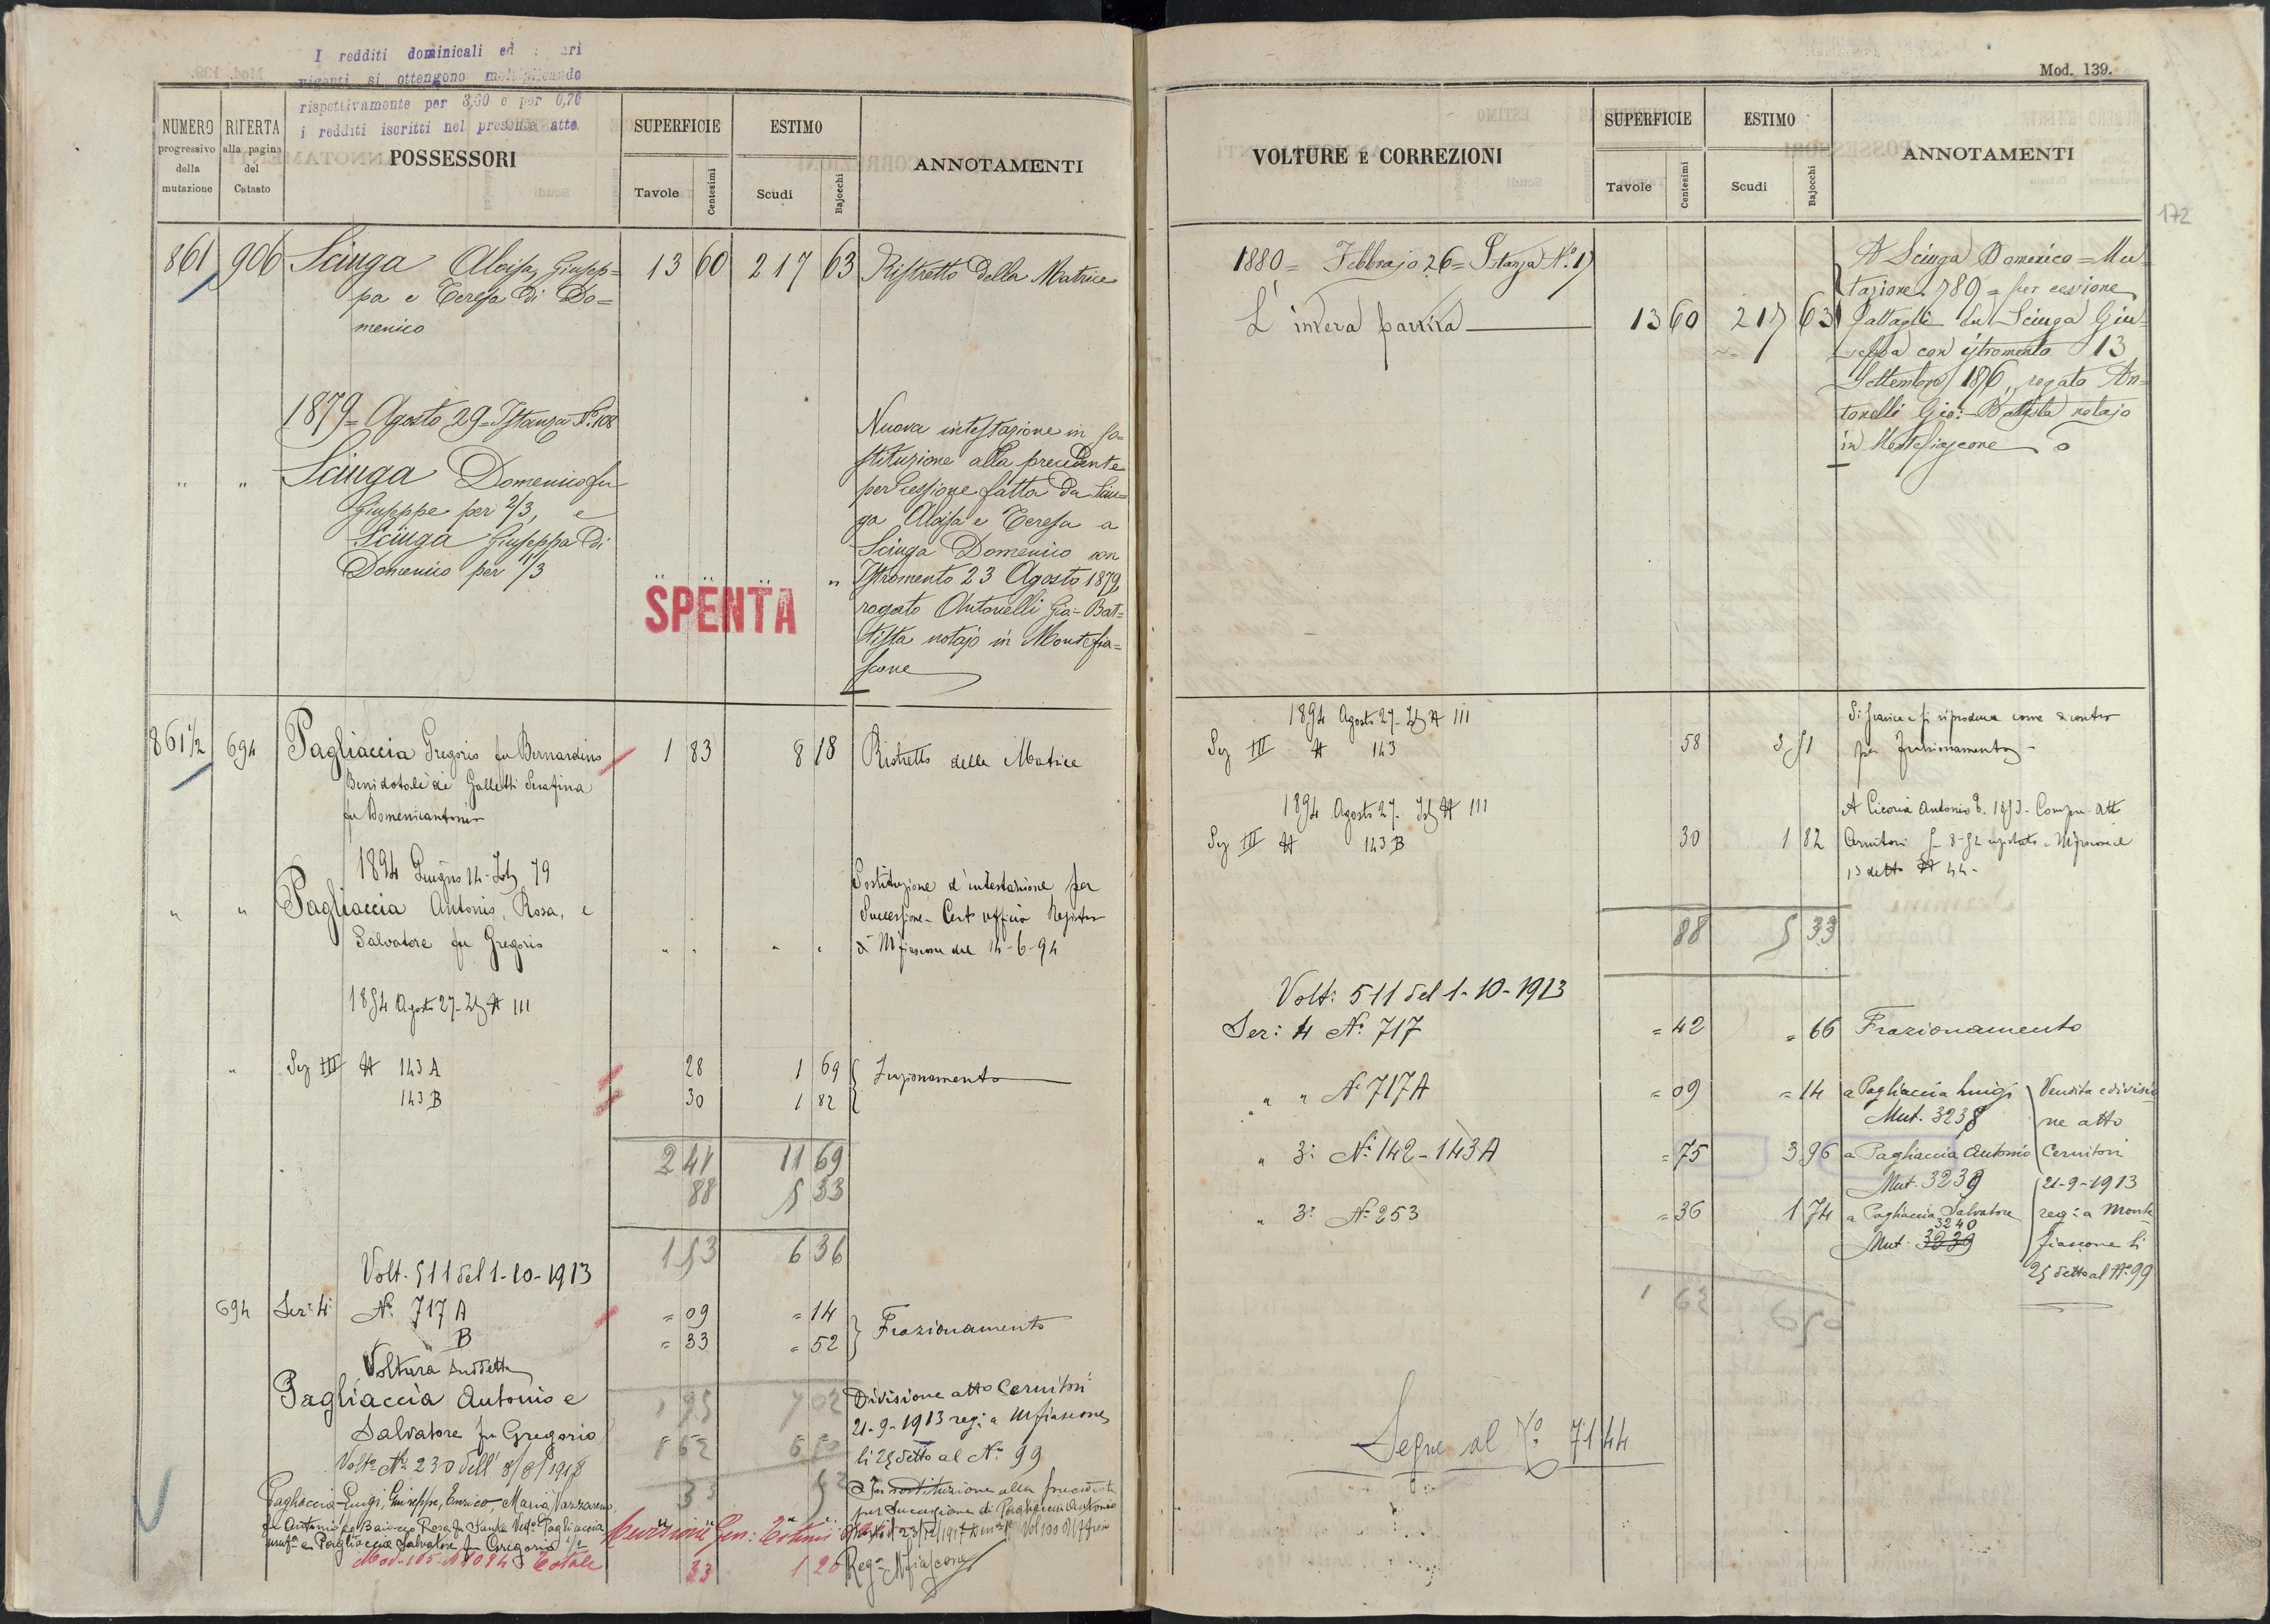 I redditi dominicali ed
si ottengono moltiplicando
rispettivamente per 3,60 e per 0,70
i redditi iscritti nel presente atto.
NUMERO progressivo della mutazione
RIFERTA alla pagina del Catasto
POSSESSORI
SUPERFICIE
Tavole Centesimi
ESTIMO
Scudi Bajocchi
ANNOTAMENTI
861 906 Sciuga Aloisa, Giusep= 13 60 217 63 Ristretto della Matrice
pa e Teresa di Do=
menico
1879 = Agosto 29 = Istanza N. 108
" " Sciuga Domenico fu
Giuseppe per 2/3, e
Sciuga Giuseppa di
Domenico per 1/3
Nuova intestazione in so=
stituzione alla precedente
per cessione fatta da Sciu=
ga Aloisa e Teresa a
Sciuga Domenico con
Istromento 23 Agosto 1879,
rogato Antonelli Gio= Bat=
tista notajo in Montefia=
scone
SPENTA
861 1/2 694 Pagliaccia Gregorio fu Bernardino 1 83 8 18 Ristretto della Matrice
Beni dotali di Galletti Serafina
fu Domenicantonio
1894 Giugno 14 - 79
" " Pagliaccia Antonio, Rosa, e
Salvatore fu Gregorio
Sostituzione d'intestazione per
Successione - Cert. Ufficio Registro
di Mfiascone del 14-6-94
1894 Agosto 27 - III
" Sez III N 143 A 28 1 69 Frazionamento
143 B 30 1 82
2 41 11 69
88 5 33
1 53 6 36
Volt. 511 del 1-10-1913
694 Sez: 4: N. 717 A = 09 = 14 Frazionamento
B = 33 = 52
Voltura suddetta
Pagliaccia Antonio e
Salvatore fu Gregorio
1 95 7 02
1 62 6 50
33 52
Divisione atto Cernitori
21-9-1913 reg: a Mfiascone
li 25 detto al N. 99
Volt. N. 230 dell' 8/8/1918
Pagliaccia Luigi, Giuseppe, Enrico, Maria, Nazzareno
fu Antonio e Baiocco Rosa fu Sante Ved. Pagliaccia
e Pagliaccia Salvatore fu Gregorio 1/2
Per sostituzione alla precedente
per Successione di Pagliaccia Antonio
Reg. Mfiascone
Revisione Gen: Estimi
Mod. 105 - N. 1084 Totale 33 1 20
Mod. 139.
VOLTURE E CORREZIONI
SUPERFICIE
Tavole Centesimi
ESTIMO
Scudi Bajocchi
ANNOTAMENTI
172
1880 = Febbrajo 26 = Istanza N. 17
L'intera partita 13 60 217 63
A Sciuga Domenico = Mu=
tazione 789 = per cessione
fattagli da Sciuga Giu=
seppa con istromento 13
Settembre 1876, rogato An=
tonelli Gio: Battista notajo
in Montefiascone
1894 Agosto 27 - III
Sez III N 143 58 3 51
Si scarica e si riproduce come di contro
per frazionamento -
1894 Agosto 27 - III
Sez III N 143 B 30 1 82
A Cicoria Antonio
Cernitori
detto N 44 -
88 5 33
Volt: 511 del 1-10-1913
Sez: 4 N. 717 = 42 = 66 Frazionamento
" " N. 717 A = 09 = 14 a Pagliaccia Luigi
Mut. 3238
" 3: N. 142 - 143 A = 75 3 96 a Pagliaccia Antonio
Mut. 3239
" 3: N. 253 = 36 1 74 a Pagliaccia Salvatore
3240
Mut. 3239
Vendita e divisio
ne atto
Cernitori
21-9-1913
reg: a Monte
fiascone li
25 detto al N. 99
1 62 6 50
Segue al N. 7144